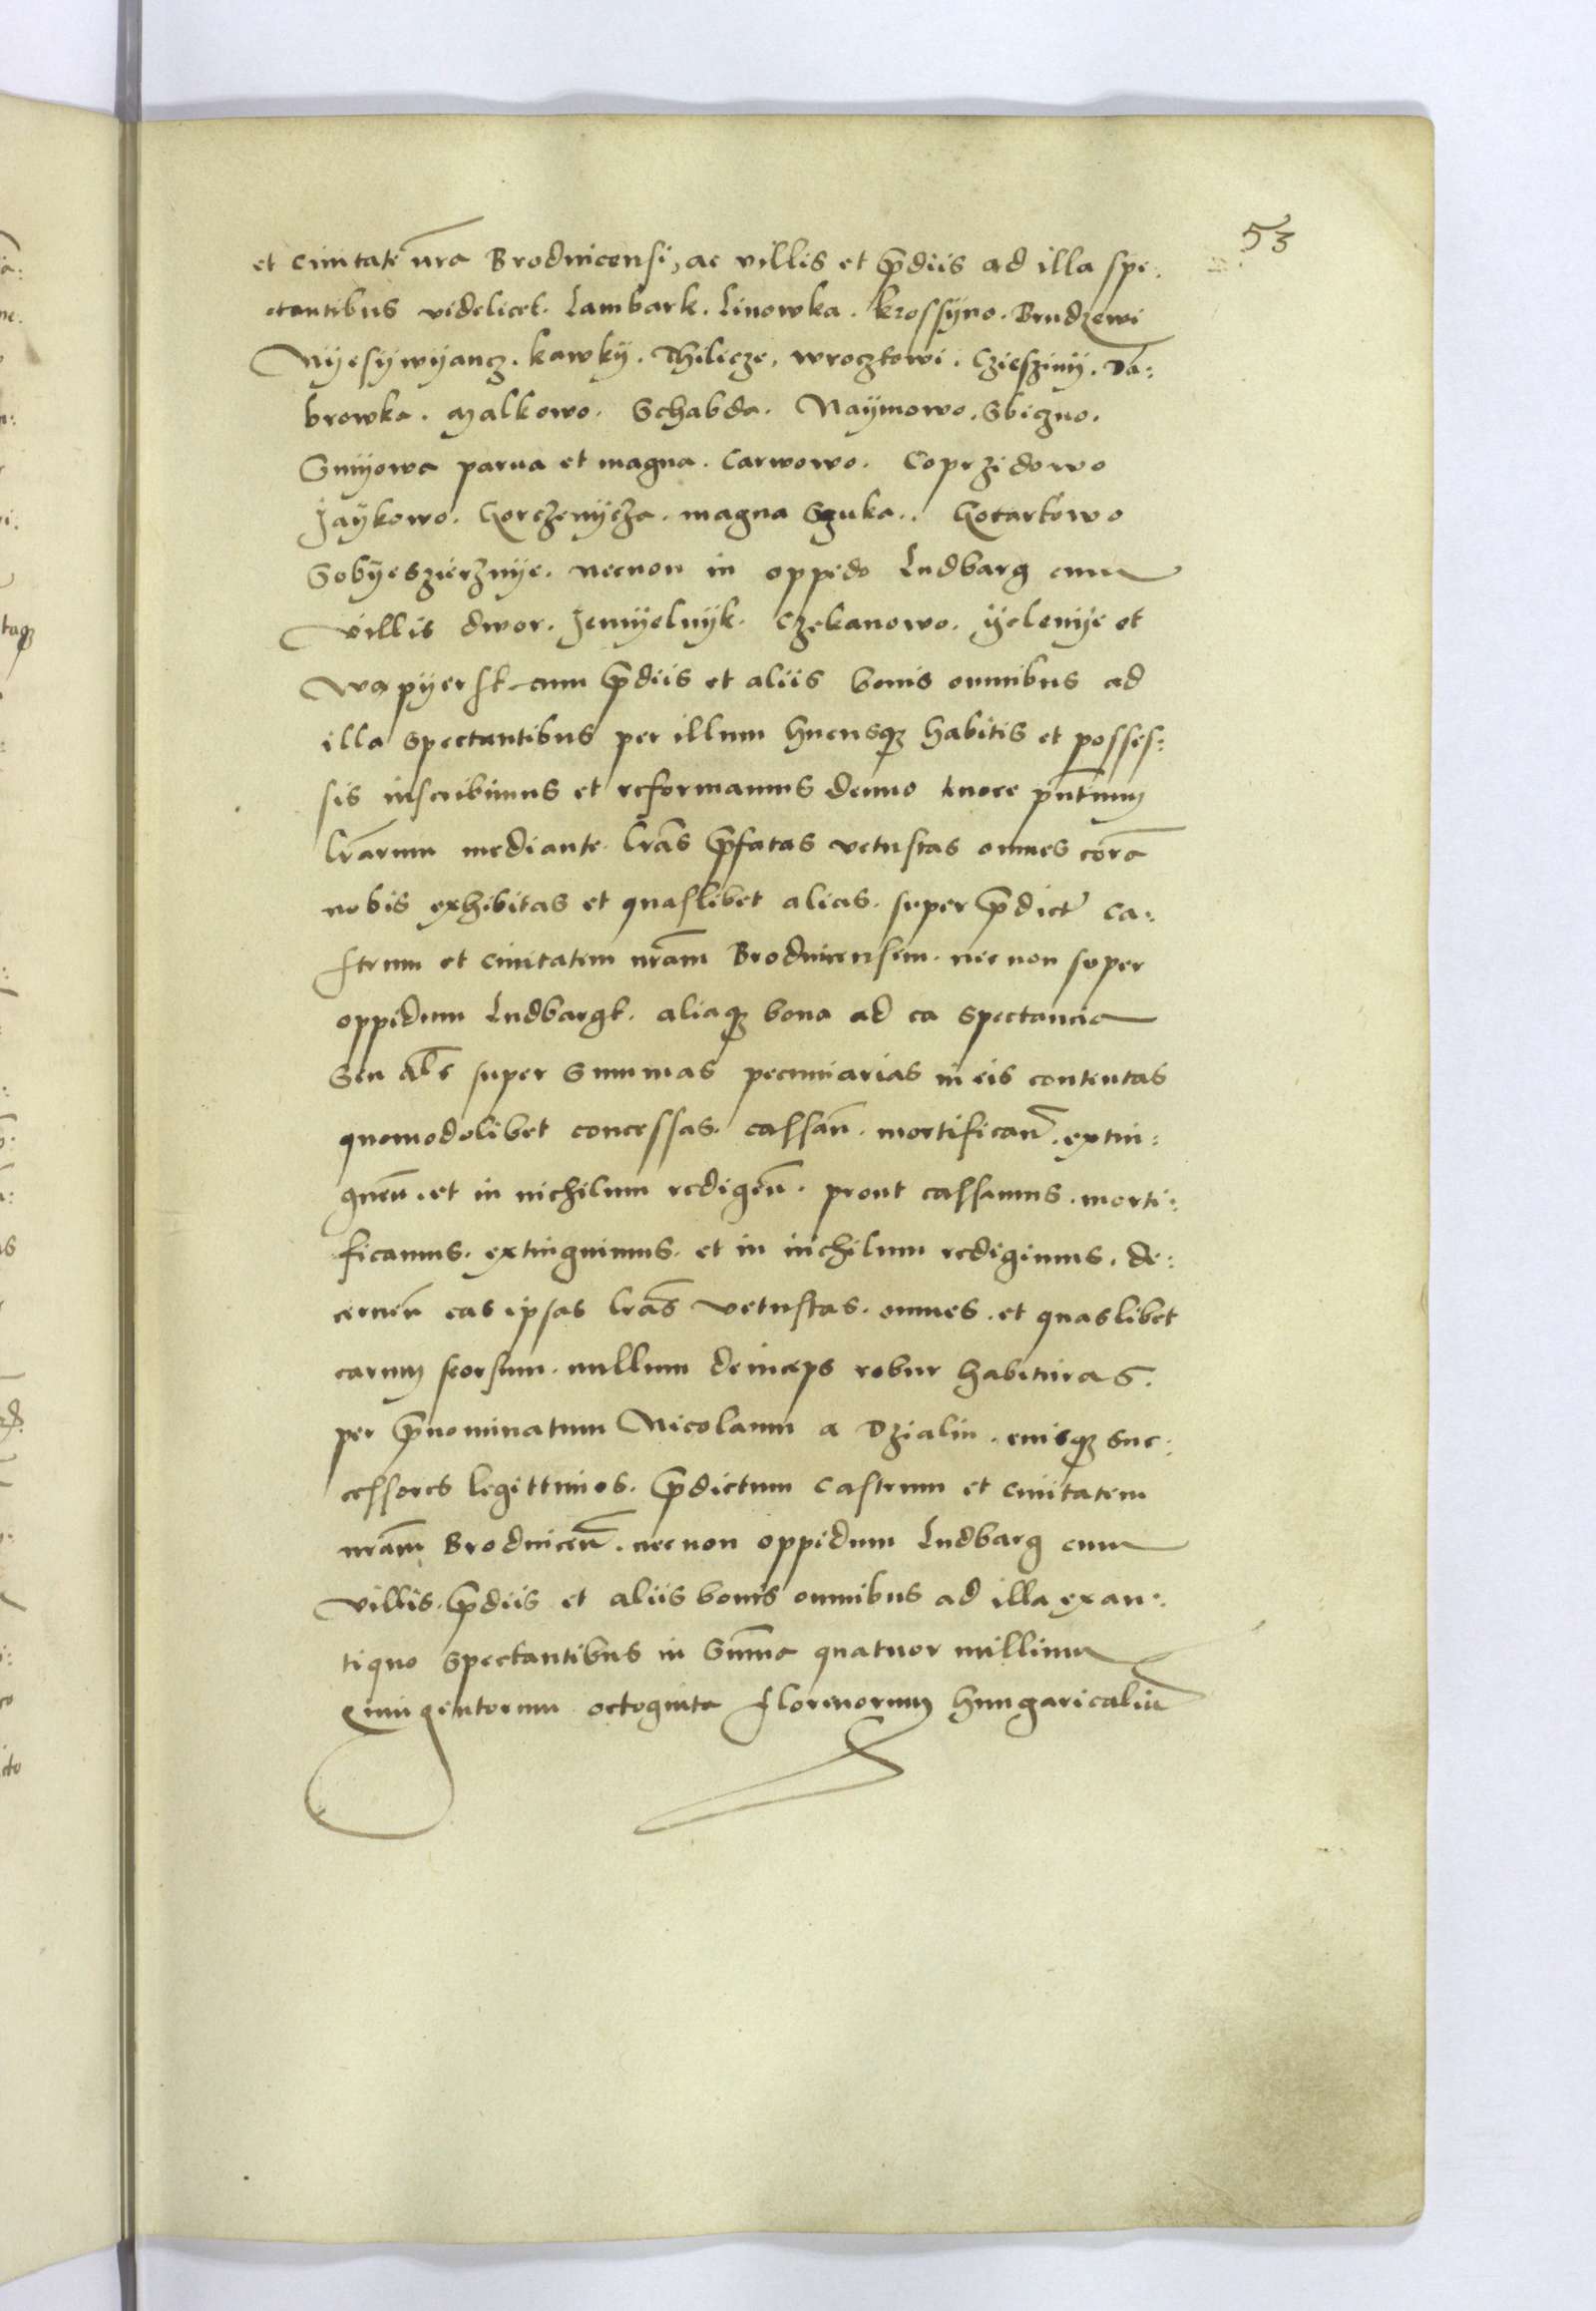 53
et ciuitate nrã Brodnicensi, ac villis et p̃diis ad illa spe:
ctantibus videlicet. Lambark. Linowka. krossÿno. Brudzewi
Nÿesÿwÿancz. kawkÿ. Thilicze, wrocztowi. Czieszinÿ. Da:
browka. Malkowo. Schabda. Naÿmowo. Sbiczno.
Gnÿowa parua et magna. Carwowo. Coprzidowo
Jaÿkowo. Gorczenÿcza. magna Szuka.. Gotartowo
Sobÿeszierznÿe. necnon in oppido Ludbarg cum
villis dwor. Jemÿelnÿk. Czekanowo. ÿelenÿe et
Wapÿersk cum p̃diis et aliis bonis omnibus ad
illa spectantibus per illum hucusq; habitis et posses:
sis inscribimus et reformamus denuo tenore pñtium
lr̃arum mediante. lr̃as p̃fatas vetustas omnes corã
nobis exhibitas et quaslibet alias. super p̃dict ca:
strum et ciuitatem nr̃am Brodnicensem. nec non super
oppidum Ludbargk. aliaq; bona ad ea spectancia
Seu als super summas pecuniarias in eis contentas
quomodolibet concessas. cassan̄. mortifican̄. extin:
guen̄. et in nichilum redigen̄. prout cassamus. morti:
ficamus. extinguimus. et in nichilum redigimus. de:
cernen̄ eas ipsas lr̃as vetustas. omnes. et quaslibet
earum seorsum. nullum deinceps robur habituras.
per p̃nominatum Nicolaum a Dzialin. eiusq; suc:
cessores legittimos. p̃dictum castrum et ciuitatem
nr̃am Brodnicen̄. necnon oppidum Ludbarg cum
villis. p̃diis et aliis bonis omnibus ad illa ex an:
tiquo spectantibus in sum̄a quatuor millium
quingentorum octoginta florenorum hungaricaliũ